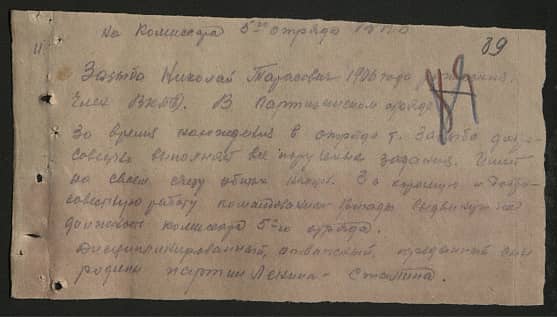 на комиссара 5го отряда
89
Зазыба Николай Тарасович 1906 года рождения,
Член ВКП(б). В партизанском отряде
За время нахождения в отряде т. Зазыба добро-
совестно выполнял все порученые задания. Имеет
на своем счету убитых немцев. За хорошую и добро-
совестную работу командованием бригады выдвинут на
должность комиссара 5го отряда.
Дисциплинированный, преданный сын
родины партии Ленина - Сталина.